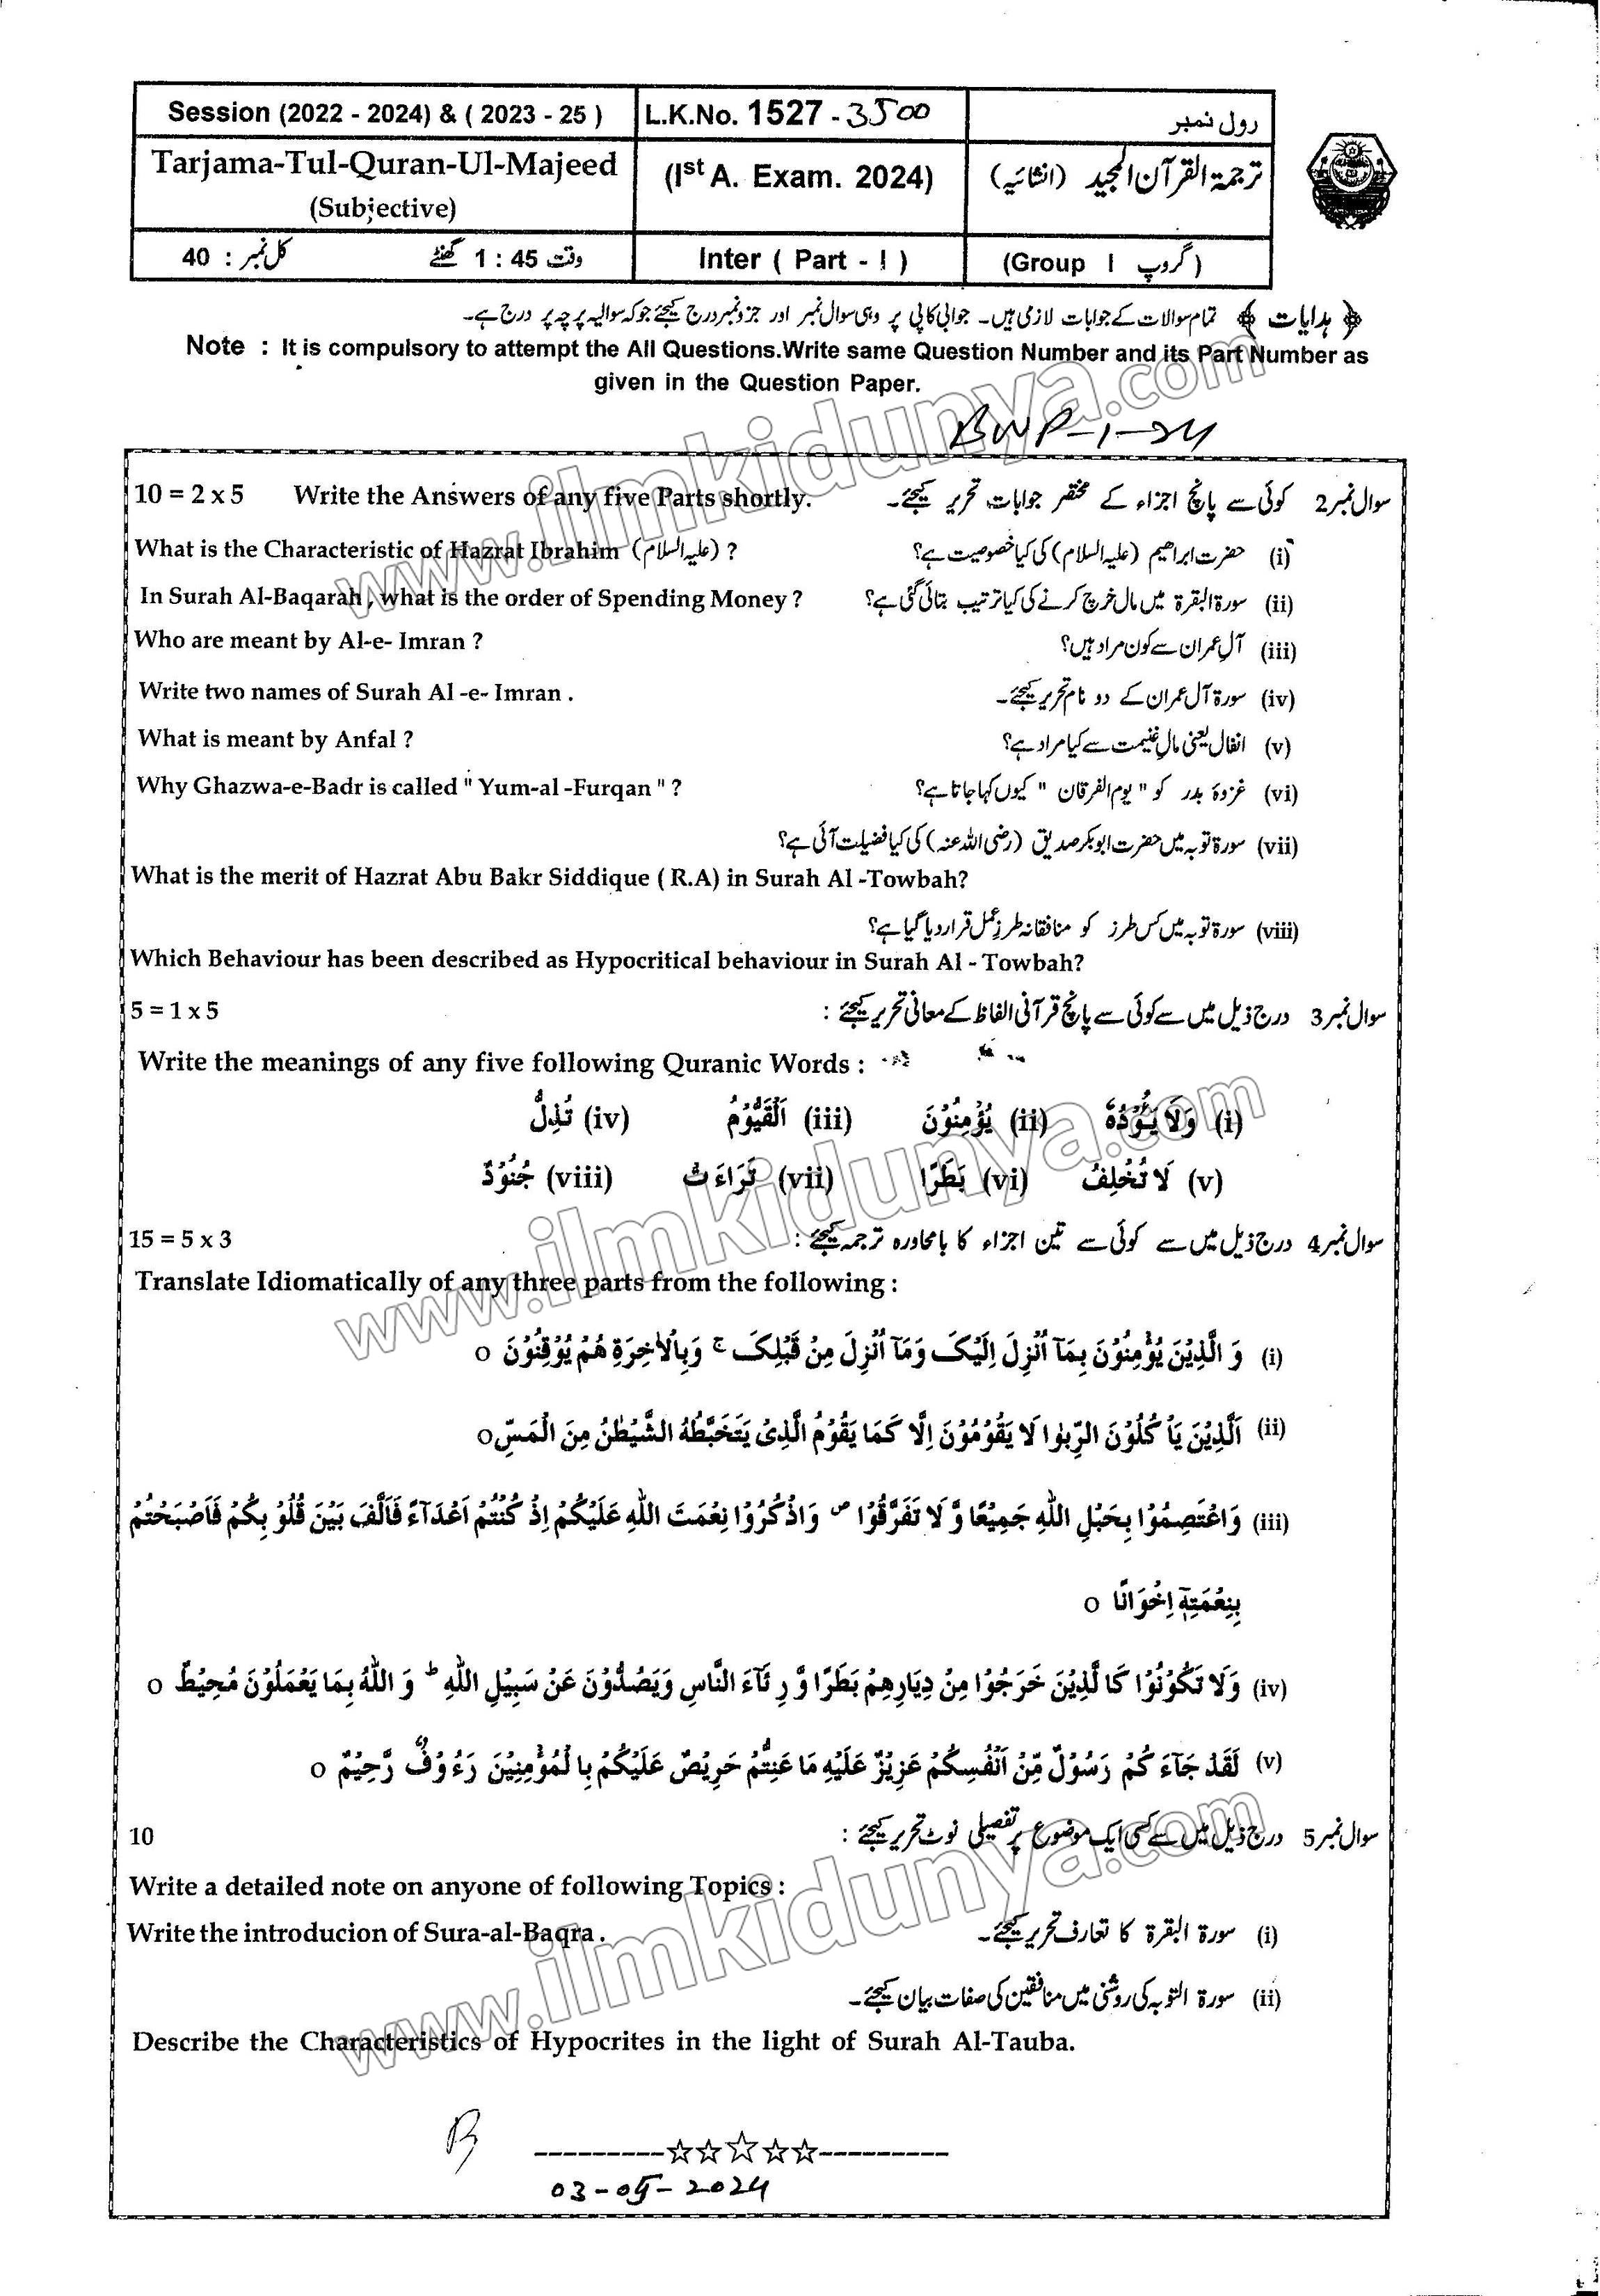 Session (2022 - 2024) & ( 2023 - 25 )
L.K.No. 1527 - 3500
رول نمبر
Tarjama-Tul-Quran-Ul-Majeed
(Subjective)
(Ist A. Exam. 2024)
ترجمۃ القرآن المجید (انشائیہ)
کل نمبر : 40
وقت 1 : 45 گھنٹے
Inter ( Part - I )
(Group I گروپ)
﴿ ہدایات ﴾ تمام سوالات کے جوابات لازمی ہیں۔ جوابی کاپی پر وہی سوال نمبر اور جزو نمبر درج کیجئے جو کہ سوالیہ پرچہ پر درج ہے۔
Note : It is compulsory to attempt the All Questions.Write same Question Number and its Part Number as
given in the Question Paper.
BWP-1-24
سوال نمبر 2 کوئی سے پانچ اجزاء کے مختصر جوابات تحریر کیجئے۔
10 = 2 x 5 Write the Answers of any five Parts shortly.
(i) حضرت ابراھیم (علیہ السلام) کی کیا خصوصیت ہے؟
What is the Characteristic of Hazrat Ibrahim (علیہ السلام) ?
(ii) سورۃ البقرۃ میں مال خرچ کرنے کی کیا ترتیب بتائی گئی ہے؟
In Surah Al-Baqarah , what is the order of Spending Money ?
(iii) آلِ عمران سے کون مراد ہیں؟
Who are meant by Al-e- Imran ?
(iv) سورۃ آل عمران کے دو نام تحریر کیجئے۔
Write two names of Surah Al -e- Imran .
(v) انفال یعنی مالِ غنیمت سے کیا مراد ہے؟
What is meant by Anfal ?
(vi) غزوۂ بدر کو " یوم الفرقان " کیوں کہا جاتا ہے؟
Why Ghazwa-e-Badr is called " Yum-al -Furqan " ?
(vii) سورۃ توبہ میں حضرت ابوبکر صدیق (رضی اللہ عنہ) کی کیا فضیلت آئی ہے؟
What is the merit of Hazrat Abu Bakr Siddique ( R.A) in Surah Al -Towbah?
(viii) سورۃ توبہ میں کس طرز کو منافقانہ طرزِ عمل قرار دیا گیا ہے؟
Which Behaviour has been described as Hypocritical behaviour in Surah Al - Towbah?
سوال نمبر 3 درج ذیل میں سے کوئی سے پانچ قرآنی الفاظ کے معانی تحریر کیجئے :
5 = 1 x 5
Write the meanings of any five following Quranic Words :
(i) وَلَا یَـُٔوْدُهٗ (ii) یُؤْمِنُوْنَ (iii) اَلْقَیُّوْمُ (iv) تُذِلُّ
(v) لَا تُخْلِفُ (vi) بَطَرًا (vii) تَرَآءَتْ (viii) جُنُوْدٌ
سوال نمبر 4 درج ذیل میں سے کوئی سے تین اجزاء کا بامحاورہ ترجمہ کیجئے :
15 = 5 x 3
Translate Idiomatically of any three parts from the following :
(i) وَ الَّذِیْنَ یُؤْمِنُوْنَ بِمَآ اُنْزِلَ اِلَیْکَ وَمَآ اُنْزِلَ مِنْ قَبْلِکَ ۚ وَبِالْاٰخِرَةِ هُمْ یُوْقِنُوْنَ o
(ii) اَلَّذِیْنَ یَاْ کُلُوْنَ الرِّبٰوا لَا یَقُوْمُوْنَ اِلَّا کَمَا یَقُوْمُ الَّذِیْ یَتَخَبَّطُهُ الشَّیْطٰنُ مِنَ الْمَسِّ o
(iii) وَاعْتَصِمُوْا بِحَبْلِ اللّٰهِ جَمِیْعًا وَّ لَا تَفَرَّقُوْا ص وَاذْکُرُوْا نِعْمَتَ اللّٰهِ عَلَیْکُمْ اِذْ کُنْتُمْ اَعْدَآءً فَاَلَّفَ بَیْنَ قُلُوْ بِکُمْ فَاَصْبَحْتُمْ
بِنِعْمَتِهٖٓ اِخْوَانًا o
(iv) وَلَا تَکُوْنُوْا کَا لَّذِیْنَ خَرَجُوْا مِنْ دِیَارِهِمْ بَطَرًا وَّ رِئَآءَ النَّاسِ وَیَصُدُّوْنَ عَنْ سَبِیْلِ اللّٰهِ ؕ وَ اللّٰهُ بِمَا یَعْمَلُوْنَ مُحِیْطٌ o
(v) لَقَدْ جَآءَ کُمْ رَسُوْلٌ مِّنْ اَنْفُسِکُمْ عَزِیْزٌ عَلَیْهِ مَا عَنِتُّمْ حَرِیْصٌ عَلَیْکُمْ بِا لْمُؤْمِنِیْنَ رَءُوْفٌ رَّحِیْمٌ o
سوال نمبر 5 درج ذیل میں سے کسی ایک موضوع پر تفصیلی نوٹ تحریر کیجئے :
10
Write a detailed note on anyone of following Topics :
(i) سورۃ البقرۃ کا تعارف تحریر کیجئے۔
Write the introducion of Sura-al-Baqra .
(ii) سورۃ التوبہ کی روشنی میں منافقین کی صفات بیان کیجئے۔
Describe the Characteristics of Hypocrites in the light of Surah Al-Tauba.
03-05-2024
www.ilmkidunya.com
www.ilmkidunya.com
www.ilmkidunya.com